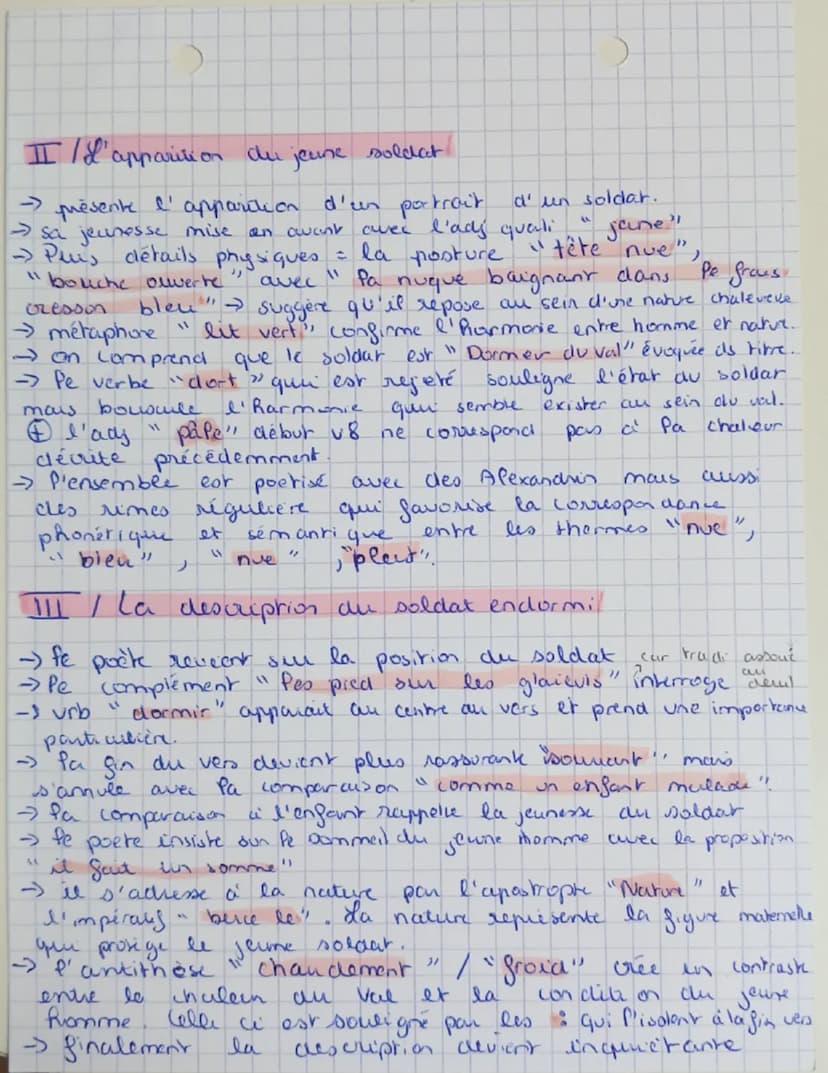 II / L'apparition du jeune soldat
→ présente l'apparition d'un portrait d'un soldat.
→ sa jeunesse mise en avant avec l'adj quali "jeune"
→ Puis détails physiques = la posture "tête nue",
"bouche ouverte" avec "la nuque baignant dans le frais
cresson bleu" → suggère qu'il repose au sein d'une nature chaleureuse
→ métaphore "lit vert", confirme l'harmonie entre homme et nature.
→ on comprend que le soldat est "Dormeur du val" évoquée ds titre.
→ le verbe "dort" qui est rejeté souligne l'état du soldat
mais bouscule l'harmonie qui semble exister au sein du val.
⊕ l'adj "pâle" début v8 ne correspond pas à la chaleur
décrite précédemment.
→ l'ensemble est poétisé avec des Alexandrin mais aussi
des rimes régulière qui favorise la correspondance
phonétique et sémantique entre les thermes "nue",
"bleu", "nue", "pleut".
III / La description du soldat endormi
→ le poète revient sur la position du soldat car tradi associé
→ le complément "les pied sur les glaïeuls" interroge au deuil
→ vrb "dormir" apparait au centre du vers et prend une importance
particulière.
→ la fin du vers devient plus rassurante "souriant" mais
s'annule avec la comparaison "comme un enfant malade".
→ la comparaison à l'enfant rappelle la jeunesse du soldat
→ le poète insiste sur le sommeil du jeune homme avec la proposition
"il fait un somme"
→ il s'adresse à la nature par l'apostrophe "Nature" et
l'impératif "berce le". La nature représente la figure maternelle
qui protège le jeune soldat.
→ l'antithèse "chaudement" / "froid" crée un contraste
entre la chaleur du val et la condition du jeune
homme. Celle ci est souligné par les : qui l'isolent à la fin vers
→ finalement la description devient inquiétante